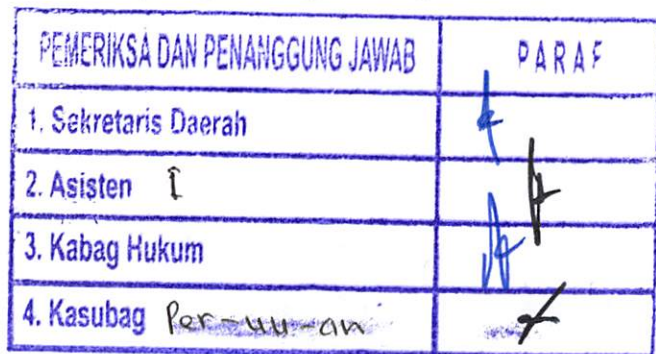 PEMERIKSA DAN PENANGGUNG JAWAB PARAF
1. Sekretaris Daerah
2. Asisten I
3. Kabag Hukum
4. Kasubag Per-uu-an